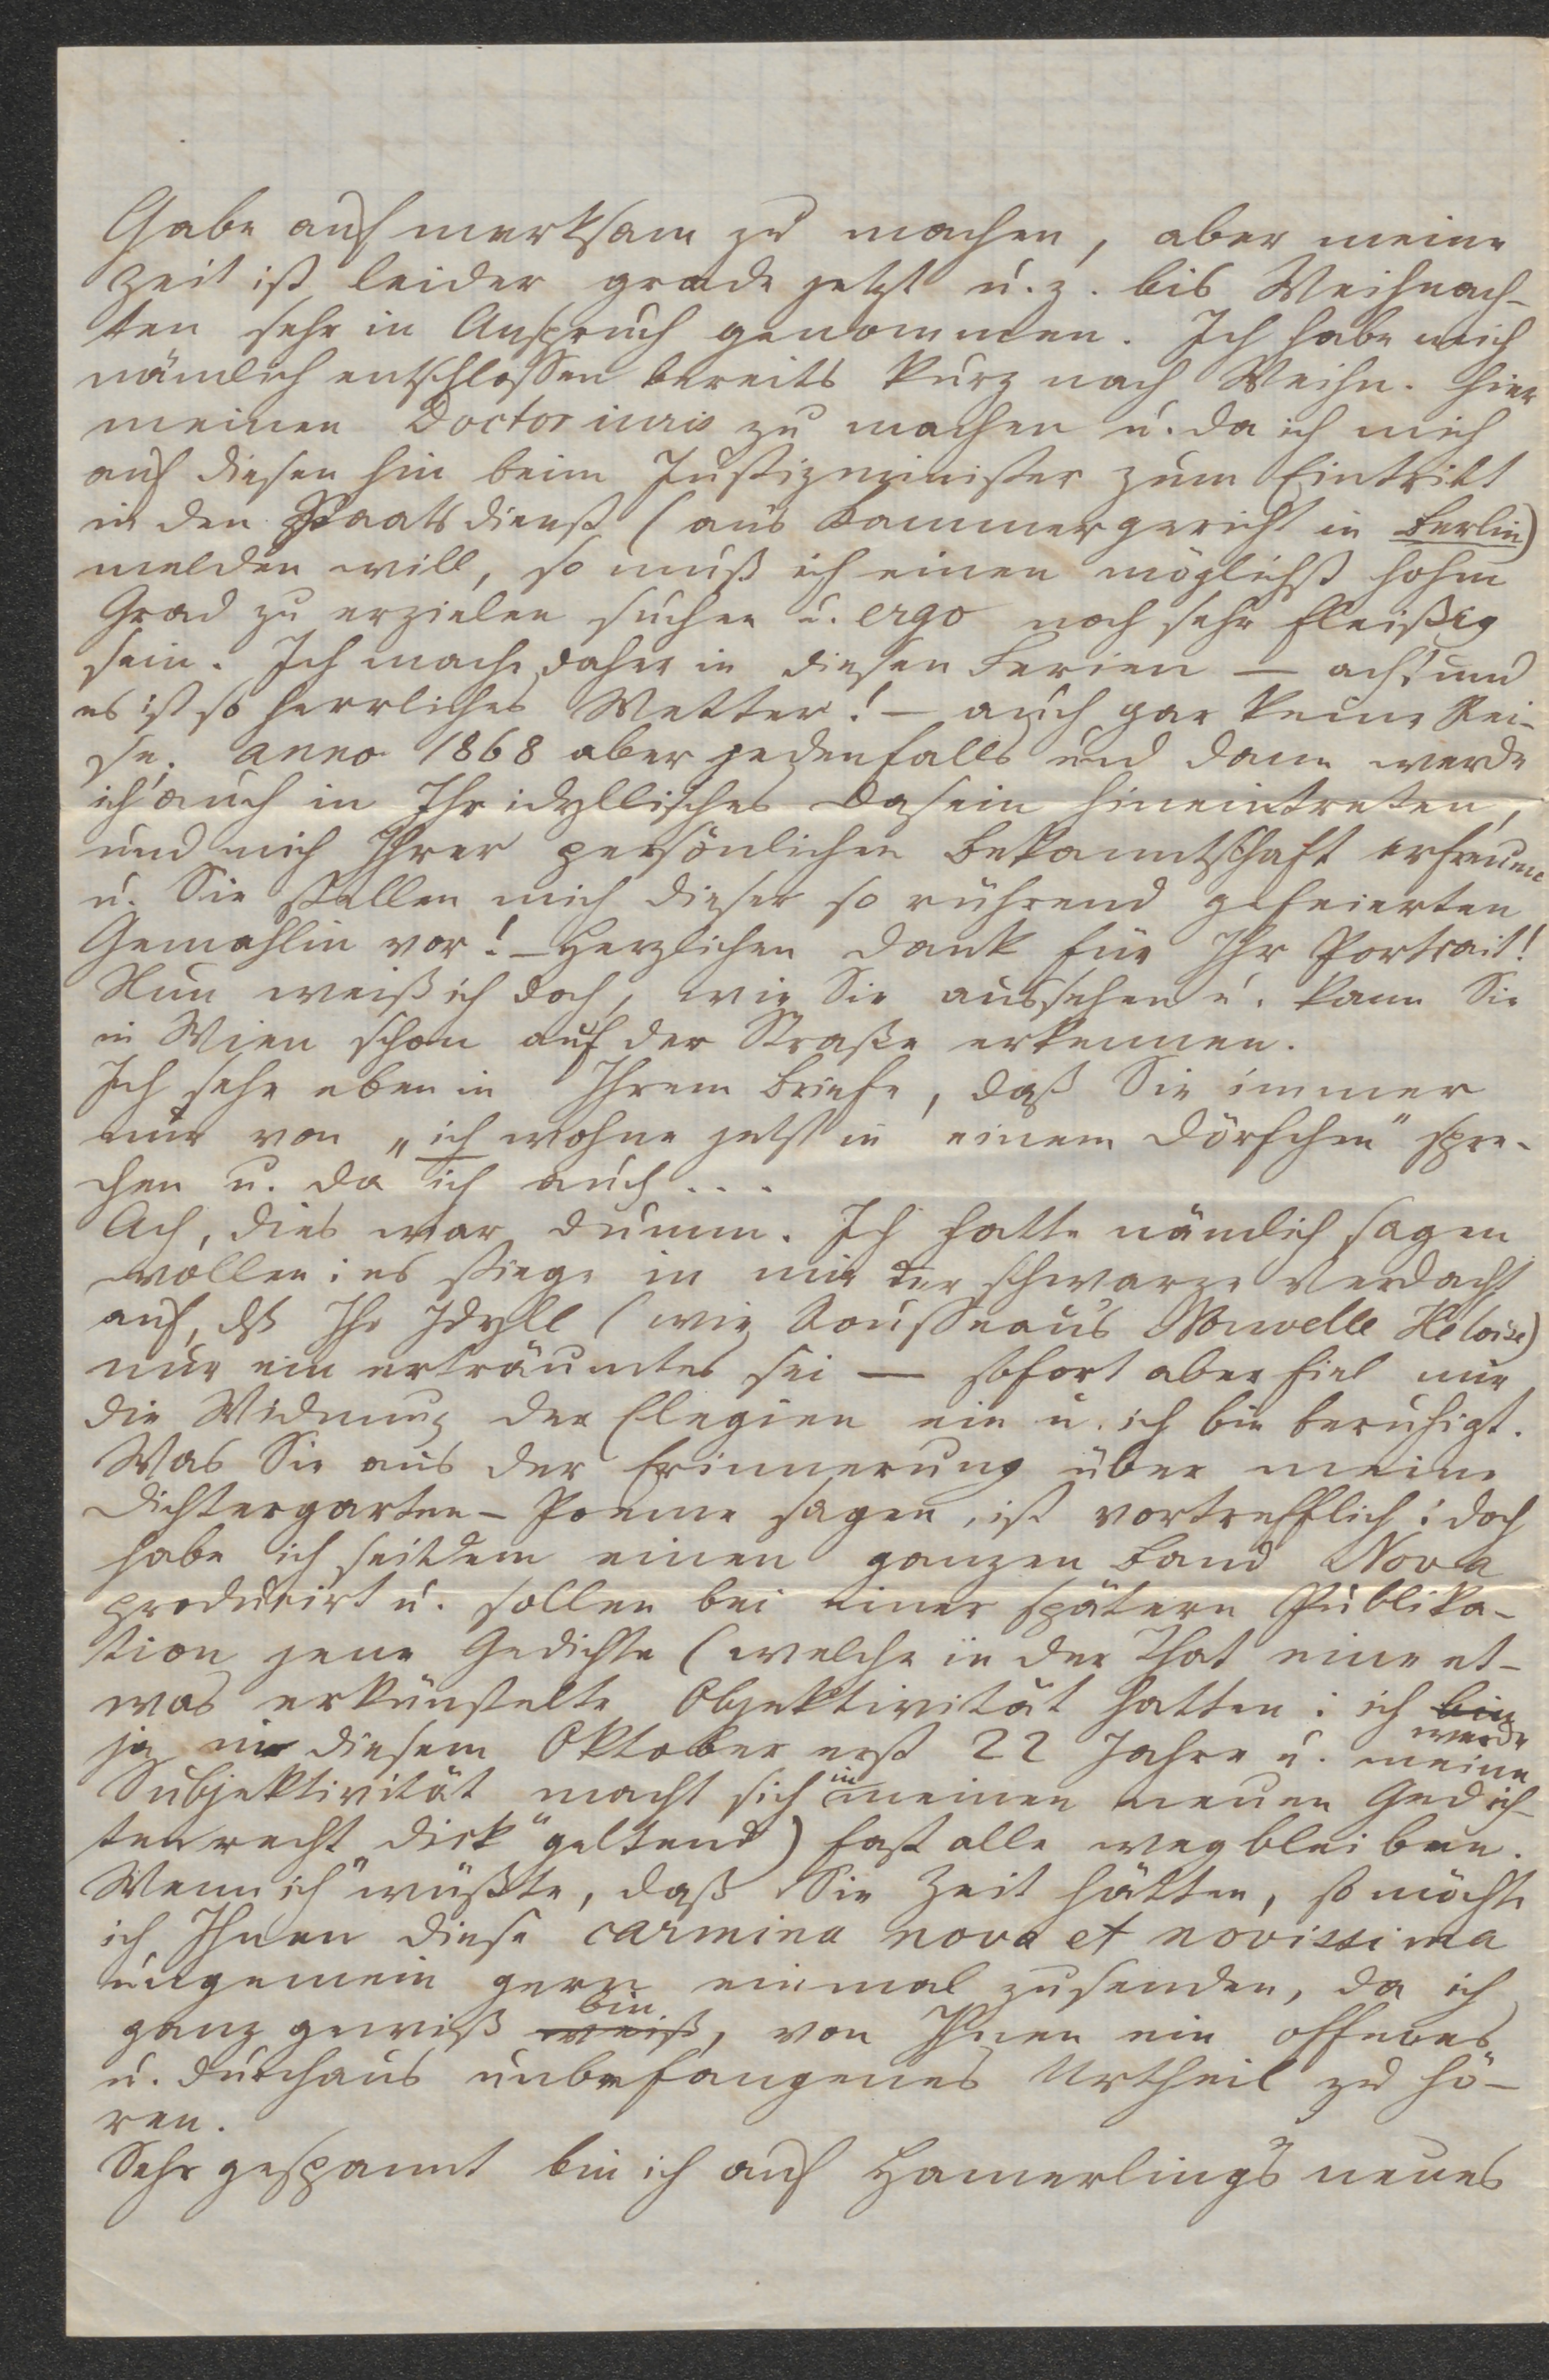 Gabe aufmerksam zu machen, aber meine
Zeit ist leider grade jetzt u. z. bis Weihnach-
ten sehr in Anspruch genommen. Ich habe mich
nämlich entschlossen bereits kurz nach Weihn. hier
meinen Doctor iuris zu machen u. da ich mich
auf diesen hin beim Justizminister zum Eintritt
in den Staatsdienst (aus Kammergericht in Berlin)
melden will, so muß ich einen möglichst hohen
Grad zu erzielen suchen u. ergo noch sehr fleißig
sein. Ich mache daher in diesen Ferien — ach! und
es ist so herrliches Wetter! — auch gar keine Rei-
se. anno 1868 aber jedenfalls und dann werde
ich auch in Ihr idyllisches Dasein hineintreten,
und mich Ihrer persönlichen Bekanntschaft erfreuen
u. Sie stellen mich dieser so rührend gefeierten
Gemahlin vor! — Herzlichen Dank für Ihr Portrait!
Nun weiß ich doch, wie Sie aussehen u. kann Sie
in Wien schon auf der Straße erkennen.
Ich sehe eben in Ihrem Briefe, daß Sie immer
nur von „ich wohne jetzt in einem Dörfchen" spre-
chen u. da ich auch ....
Ach, dies war dumm. Ich hatte nämlich sagen
wollen: es stiege in mir der schwarze Verdacht
auf, dß Ihr Idyll (wie Rousseau's Nouvelle Héloise)
nur ein erträumtes sei — sofort aber fiel mir
die Widmung der Elegien ein u. ich bin beruhigt.
Was Sie aus der Erinnerung über meine
Dichtergarten-Poeme sagen, ist vortrefflich: doch
habe ich seitdem einen ganzen Band Nova
producirt u. sollen bei einer spätern Publika-
tion jene Gedichte (welche in der That eine et-
was erkünstelte Objektivität hatten: ich bin
werde
ja in diesem Oktober erst 22 Jahre u. meine
Subjektivität macht sich in meinen neuen Gedich-
ten recht „dick" geltend) fast alle wegbleiben.
Wenn ich wüßte, daß Sie Zeit hätten, so möchte
ich Ihnen diese carmina nova et novissima
ungemein gern einmal zusenden, da ich
bin
ganz gewiß weiß, von Ihnen ein offenes
u. durchaus unbefangenes Urtheil zu hö-
ren.
Sehr gespannt bin ich auf Hamerling's neues